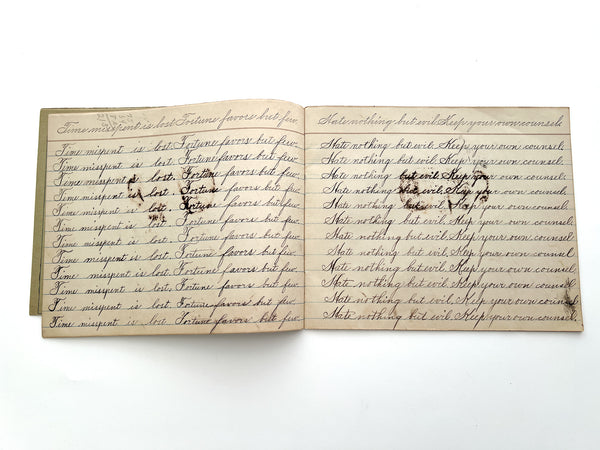 Time misspent is lost Fortune favors but few.
Time misspent is lost. Fortune favors but few.
Time misspent is lost. Fortune favors but few.
Time misspent is lost. Fortune favors but few.
Time misspent is lost. Fortune favors but few.
Time misspent is lost. Fortune favors but few.
Time misspent is lost. Fortune favors but few.
Time misspent is lost. Fortune favors but few.
Time misspent is lost. Fortune favors but few.
Time misspent is lost. Fortune favors but few.
Time misspent is lost. Fortune favors but few.
Time misspent is lost. Fortune favors but few.
Time misspent is lost. Fortune favors but few.
Hate nothing but evil. Keep your own counsel.
Hate nothing but evil. Keep your own counsel.
Hate nothing but evil. Keep your own counsel.
Hate nothing but evil. Keep your own counsel.
Hate nothing but evil. Keep your own counsel.
Hate nothing but evil. Keep your own counsel.
Hate nothing but evil. Keep your own counsel.
Hate nothing but evil. Keep your own counsel.
Hate nothing but evil. Keep your own counsel
Hate nothing but evil. Keep your own counsel.
Hate nothing but evil. Keep your own counsel.
Hate nothing but evil. Keep your own counsel.
Hate nothing but evil. Keep your own counsel.